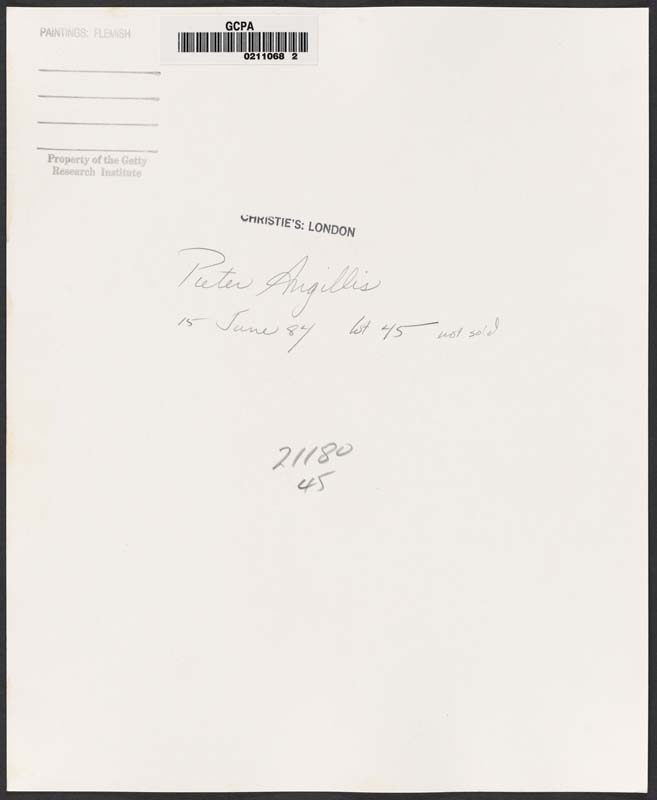 PAINTINGS: FLEMISH
GCPA
0211068 2
Property of the Getty
Research Institute
CHRISTIE'S: LONDON
Pieter Angillis
15 June 84 lot 45 not sold
21180
45